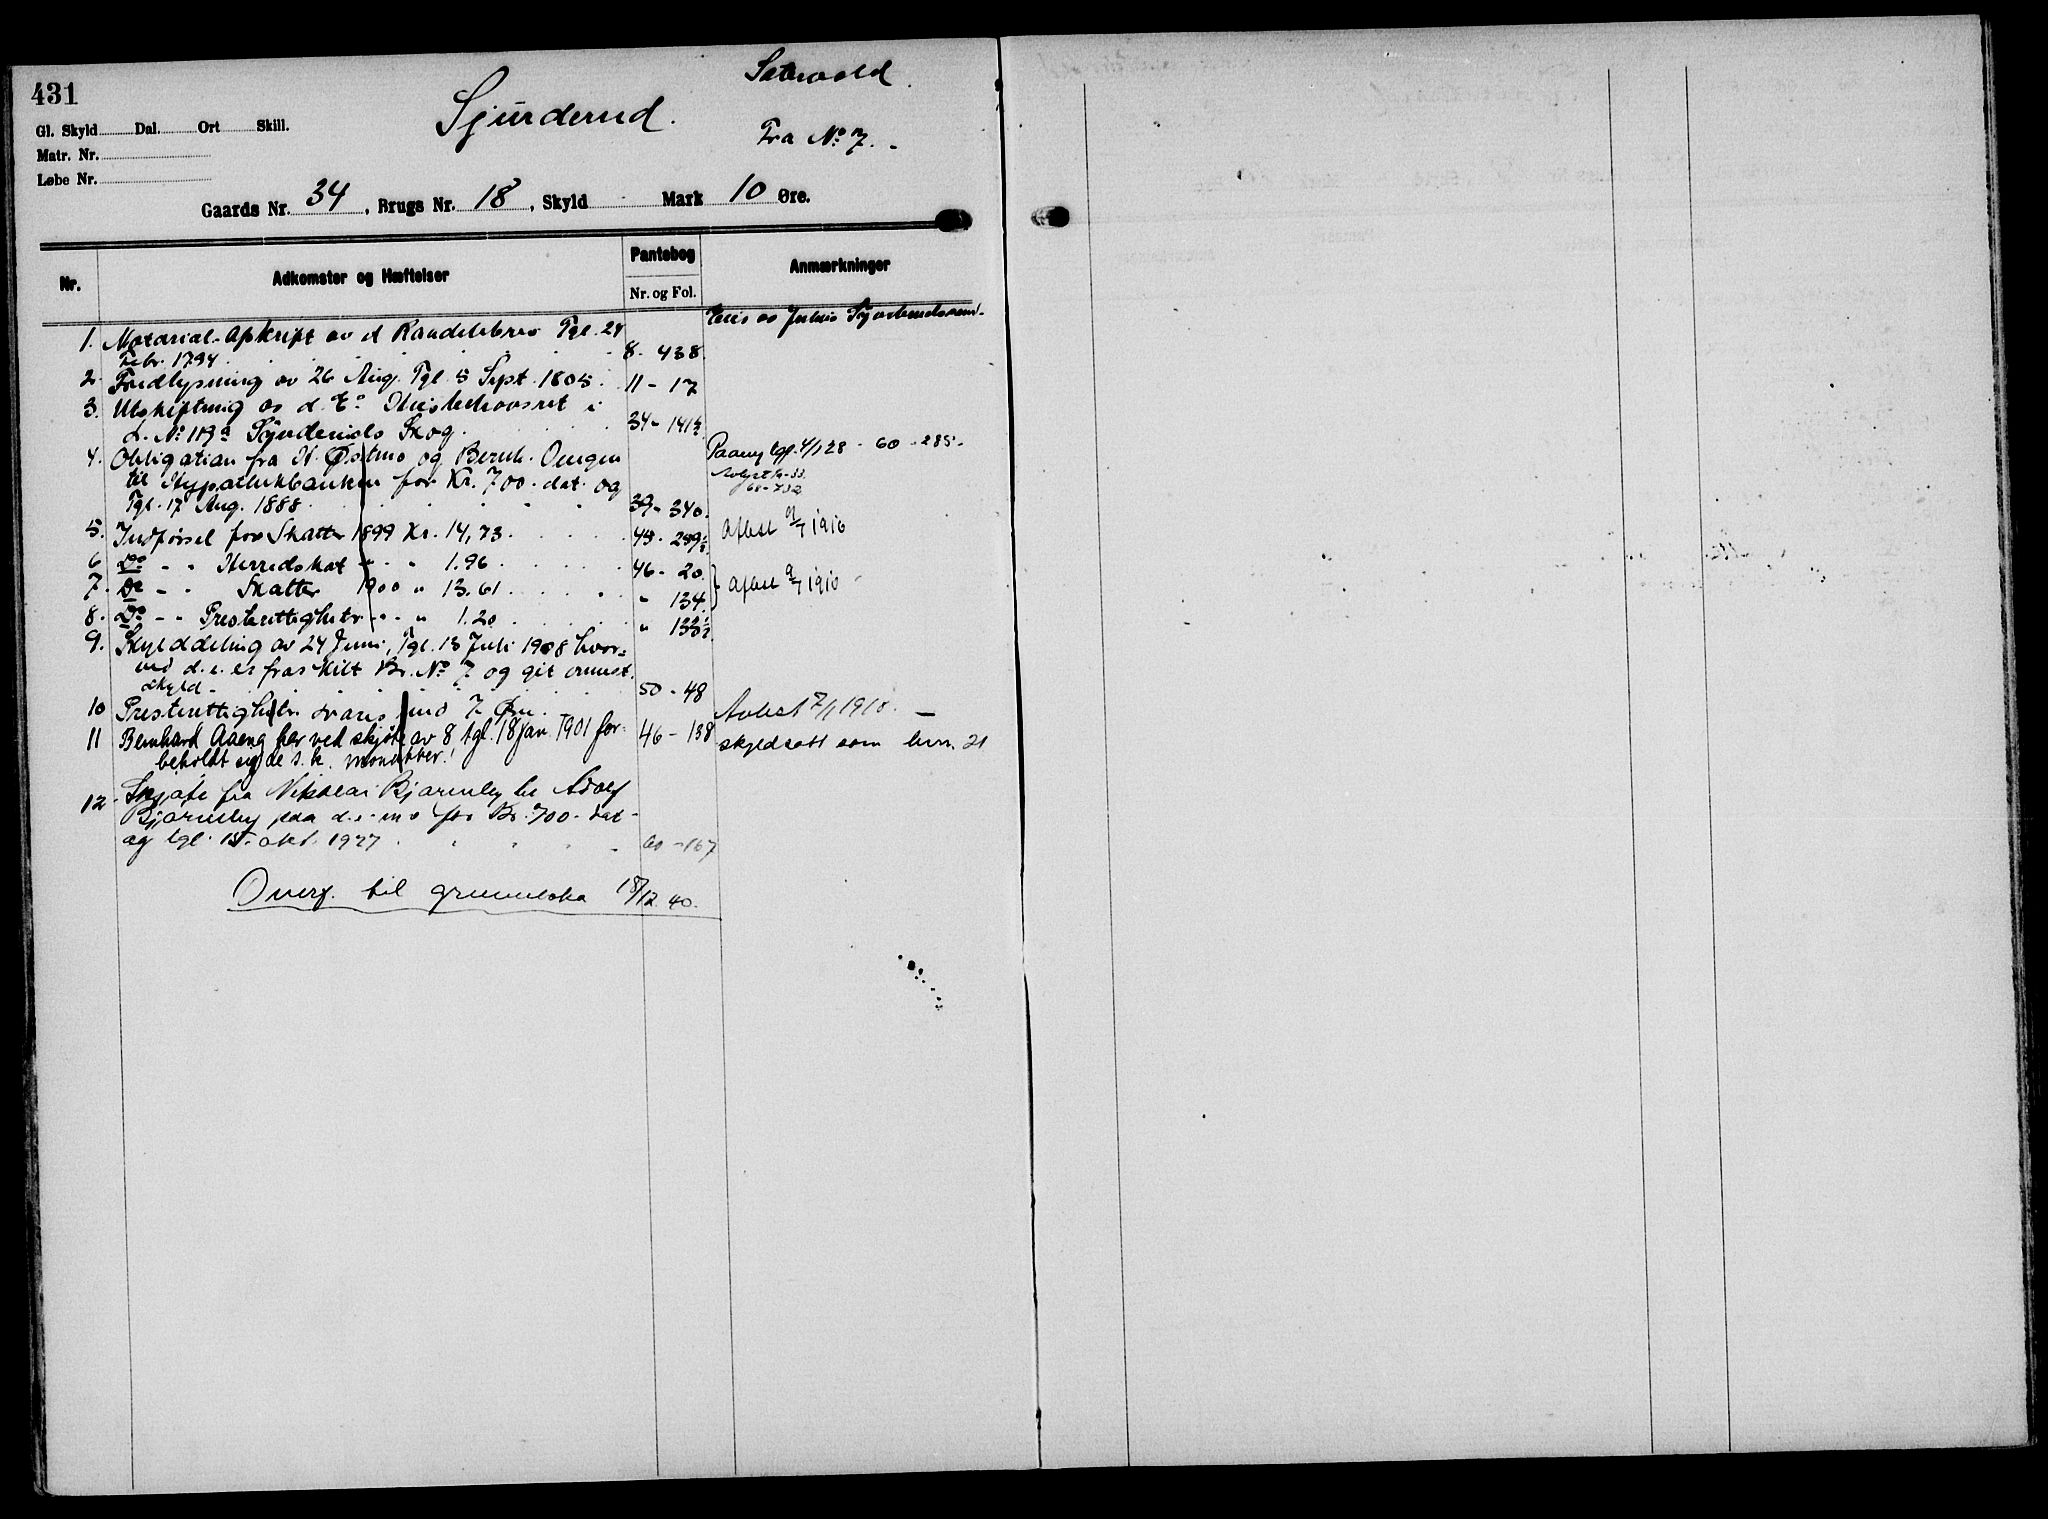 431
Sjurderud.
Fra No 7.
Gl. Skyld Dal. Ort Skill.
Matr. Nr.
Løbe Nr.
Gaards Nr. 34, Brugs Nr. 18, Skyld Mark 10 Øre.
Nr. Adkomster og Hæftelser Pantebog Anmærkninger
Nr. og Fol.
1. Notarial-Afskrift av et Febr. 1794. Tgl. 24 8 - 438
2. Fredlysning av 26 Aug. Tgl. 5 Sept. 1805. 11 - 17
3. Utskiftning av i
L. No 119a Sjurderuds Skog. 34 -
4. Obligation fra N. Østmo og Bernh. Oengen Paany tgl. 4/1 28 - 60 - 285 -
til Hypothekbanken for Kr. 700. dat. og
Tgl. 17 Aug. 1888 39 - 340.
5. Indførsel for Skatter 1899 Kr. 14,73. Aflest 9/7 1910
6 Do - - Herredskat - " 1.96 46 - 20.
7. Do - - Skatter 1900 " 13.61 " 134. Aflest 9/7 1910
8. Do - - Presterettigheter - - " 1.20 "
9. Skylddeling av 24 Juni, Tgl. 13 Juli 1908 hvor-
ved d. e. er fraskilt Br. No 7 og git ovennst.
skyld - 50 - 48
10 Presterettigheter svares med 7 Øre. Avlest 7/1 1910. -
11 Bernhard Aaeng har ved skjøte av 8 tgl. 18 jan. 1901 for- 46 - 138 skyldsatt som brnr. 21
beholdt sig de s. k.
12 Skjøte fra Nikolai Bjørneby til Adolf
Bjørneby paa d. e. m v for Kr. 700. dat -
og tgl. 15. okt. 1927 60 - 167
Overf. til grunnboka 18/12 40.